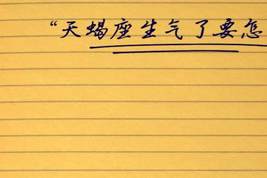 “天蝎座生气了要怎